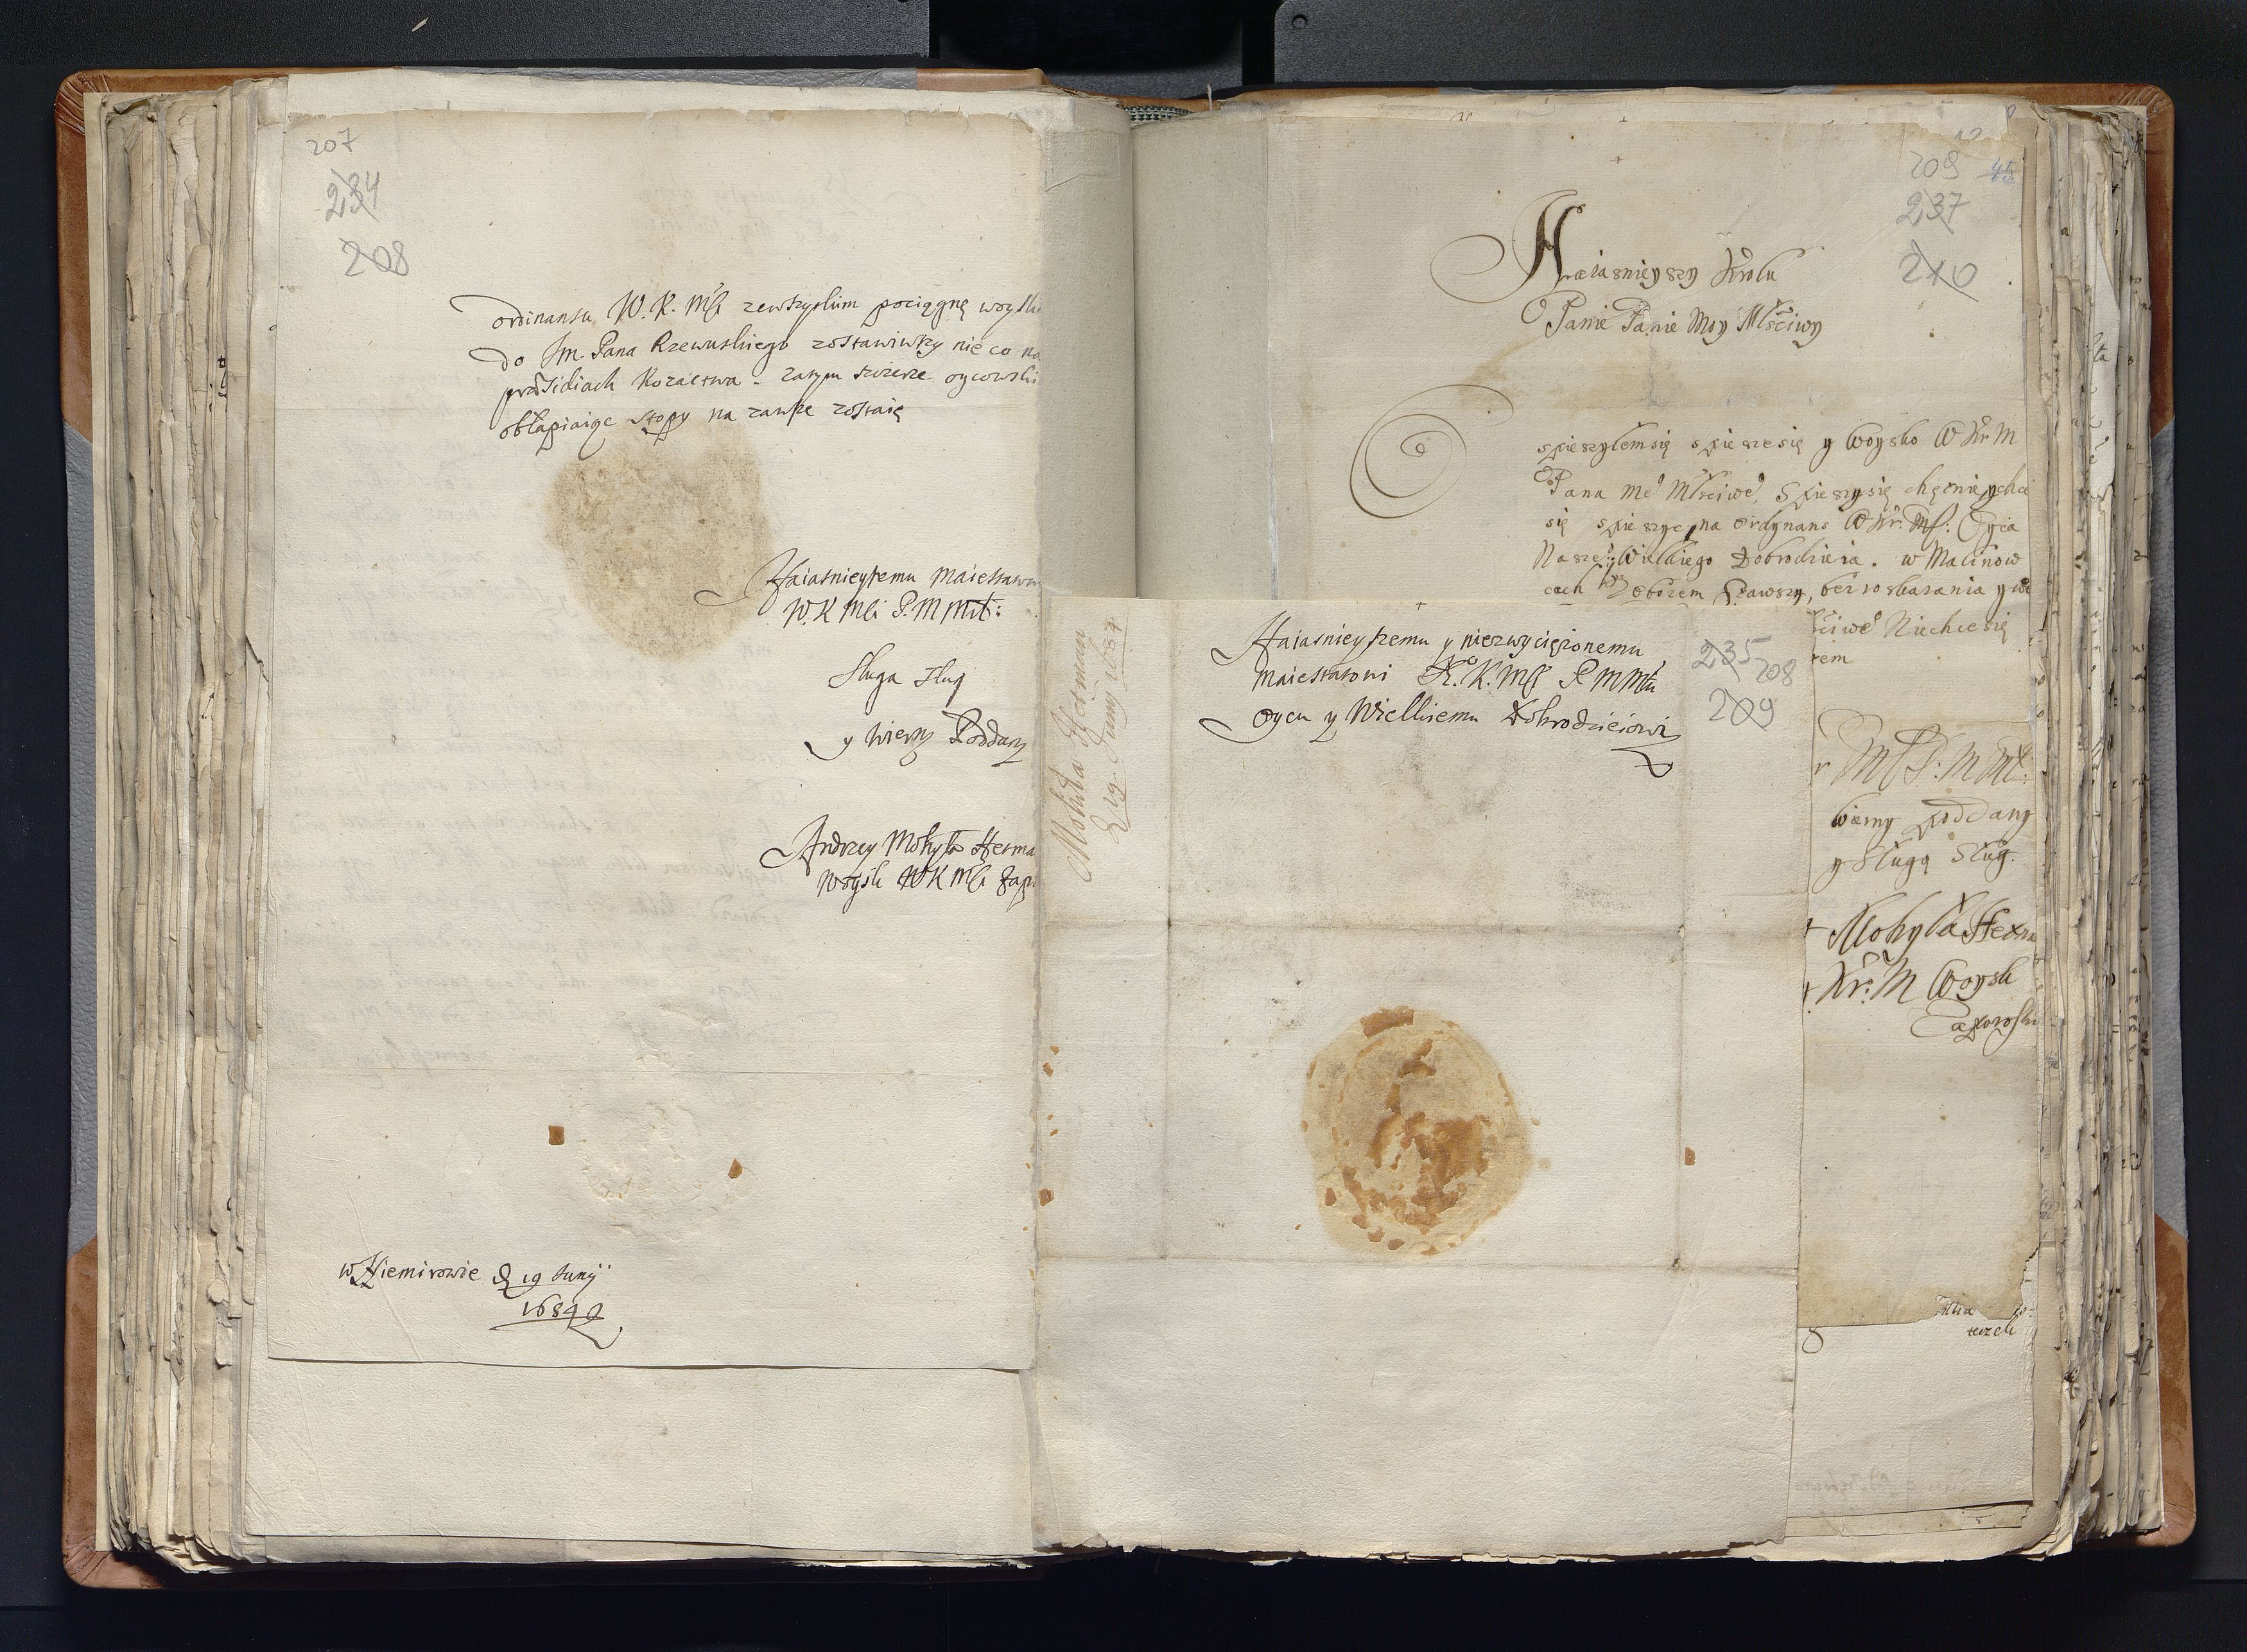 207
234
208
ordinansu W. K. Mści zewszystkim pociągnę woysk
do Jm. Pana Rzewuskiego zostawiwszy nieco na
præsidiach Kozactwa - zatym szczerze oycowski
obłapiaiąc stopy na zawsze zostaię
Naiasnieyszemu Maiestatow
W. K Mści P. M Młt:
Sługa sług
y wierny Poddany
Andrzey Mohyła Hetma
Woysk WK Mści Zap
w Niemirowie D 19 Junij
1684
Mohiła Hetman
D 19. Junij 1684
Naiasnieyszemu y niezwyciężonemu
Maiestatowi K. K. Mści P M Młu
Oycu y Wielkiemu Dobrodzieiowi
235
208
209
209
45
237
210
Naiasnieyszy Krolu
Panie Panie Moy Mściwy
spieszyłem się spiesze się y Woysko W Kr M
Pana me° Mściwe°, Spieszy się chętnie y chce
się spieszyc, na ordynans W Kr: Mś: Oyca
Nasze° Wielkiego Dobrodzieia. w Malinow
cach obozem stawszy, bez roskazania y wo
ściwe° Niechce się
tem
Mś P: M Mł:
wierny poddany
y Sługa Sług.
Mohyła Hetma
Kr: M Woysk
Zaporoski